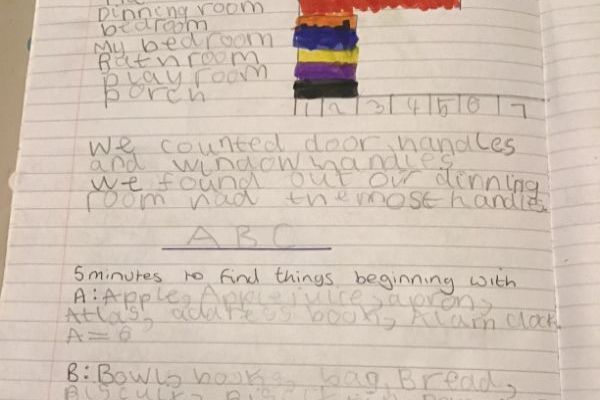 Dinning room
bedroom
My bedroom
Bathroom
play room
porch
1 2 3 4 5 6 7
We counted door handles
and window handles
We found out our dinning
room had the most handles.
A B C
5 minutes to find things beginning with
A: Apple, Apple juice, apron,
Atlas, address book, Alarm clock
A = 6
B: Bowls, books, bag, Bread,